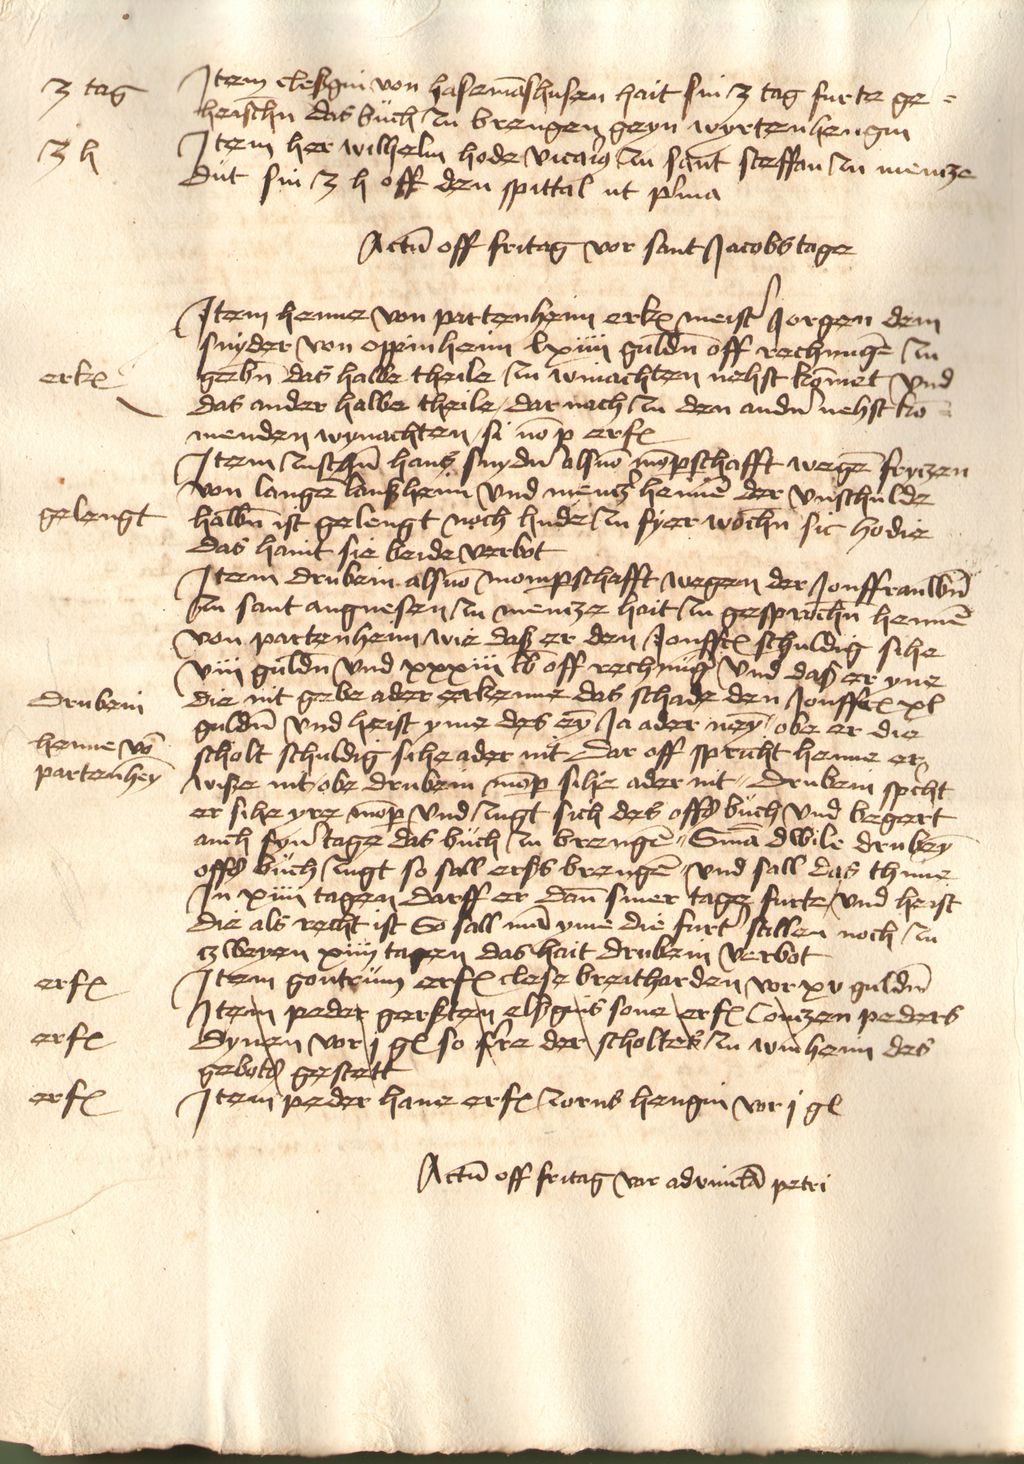 3 tag
Item clesgin von hasemashusen hait sin 3 tag furte ge=
heischn das buch zu brengen geyn wyrtenhengin
3 h
Item her wilhelm hode vicarius zu sant steffan zu mencze
dut sin 3 h off den spittal ut prima
Actu off fritag vor sant Jacobs tage
Item henne von partenheim erk meist Jorgen dem
snyder von oppinheim lxiiii guldn off rechnunge zu
erk
gebn das halbe theile zu winachten nehst komet und
das ander halbe theile dar nach zu den andn nehst ko
menden wynachten si no p erf
Item zuschn hans snydn als no mop schafft wege fryczen
von langelanszheim und mencz henne der unschulde
gelengt
halbn ist gelengt noch hude zu fyer wochn sic hodie
das haint sie beide verbot
Item drubein als no momperschafft wegen der Jonffrauwn
zu sant angnesen zu mencze hait zu gesprochn henne
von partenheim wie dasz er den Jonff schuldig sihe
viii guldn und xxxiii lb off rechnung und dasz er yne
drubein
die nit gebe ader erkenne das schade den Jonff xl
guldn und heist yme des ey Ja ader ney obe er die
henne vo
scholt schuldig sihe ader nit dar off spricht henne er
partenhey
wisze nit obe drubein mop sihe ader nit drubein spcht
er sihe yre mop und zugt sich des offs buch und begert
auch syn tage das buch zu brenge Sma dwile drubey
offs buch zugt so sall ers brengen und sall das thune
In xiiii tagen darff er dan siner tage furte und heist
die als recht ist So sall ma yme die furt stillen noch zu
czweyen xiiii tagen das hait drubein verbot
erf
Item gontrum erf clese breitharden vor xv guldn
Item peder gersten elszgins sone erf Conczen peders
erf
dynen vor j gl so fre der scholtes zu winheim des
gebots gestett
erf
Item peder hane erf zorns hengin vor j gl
Actu off fritag vor advincla petri